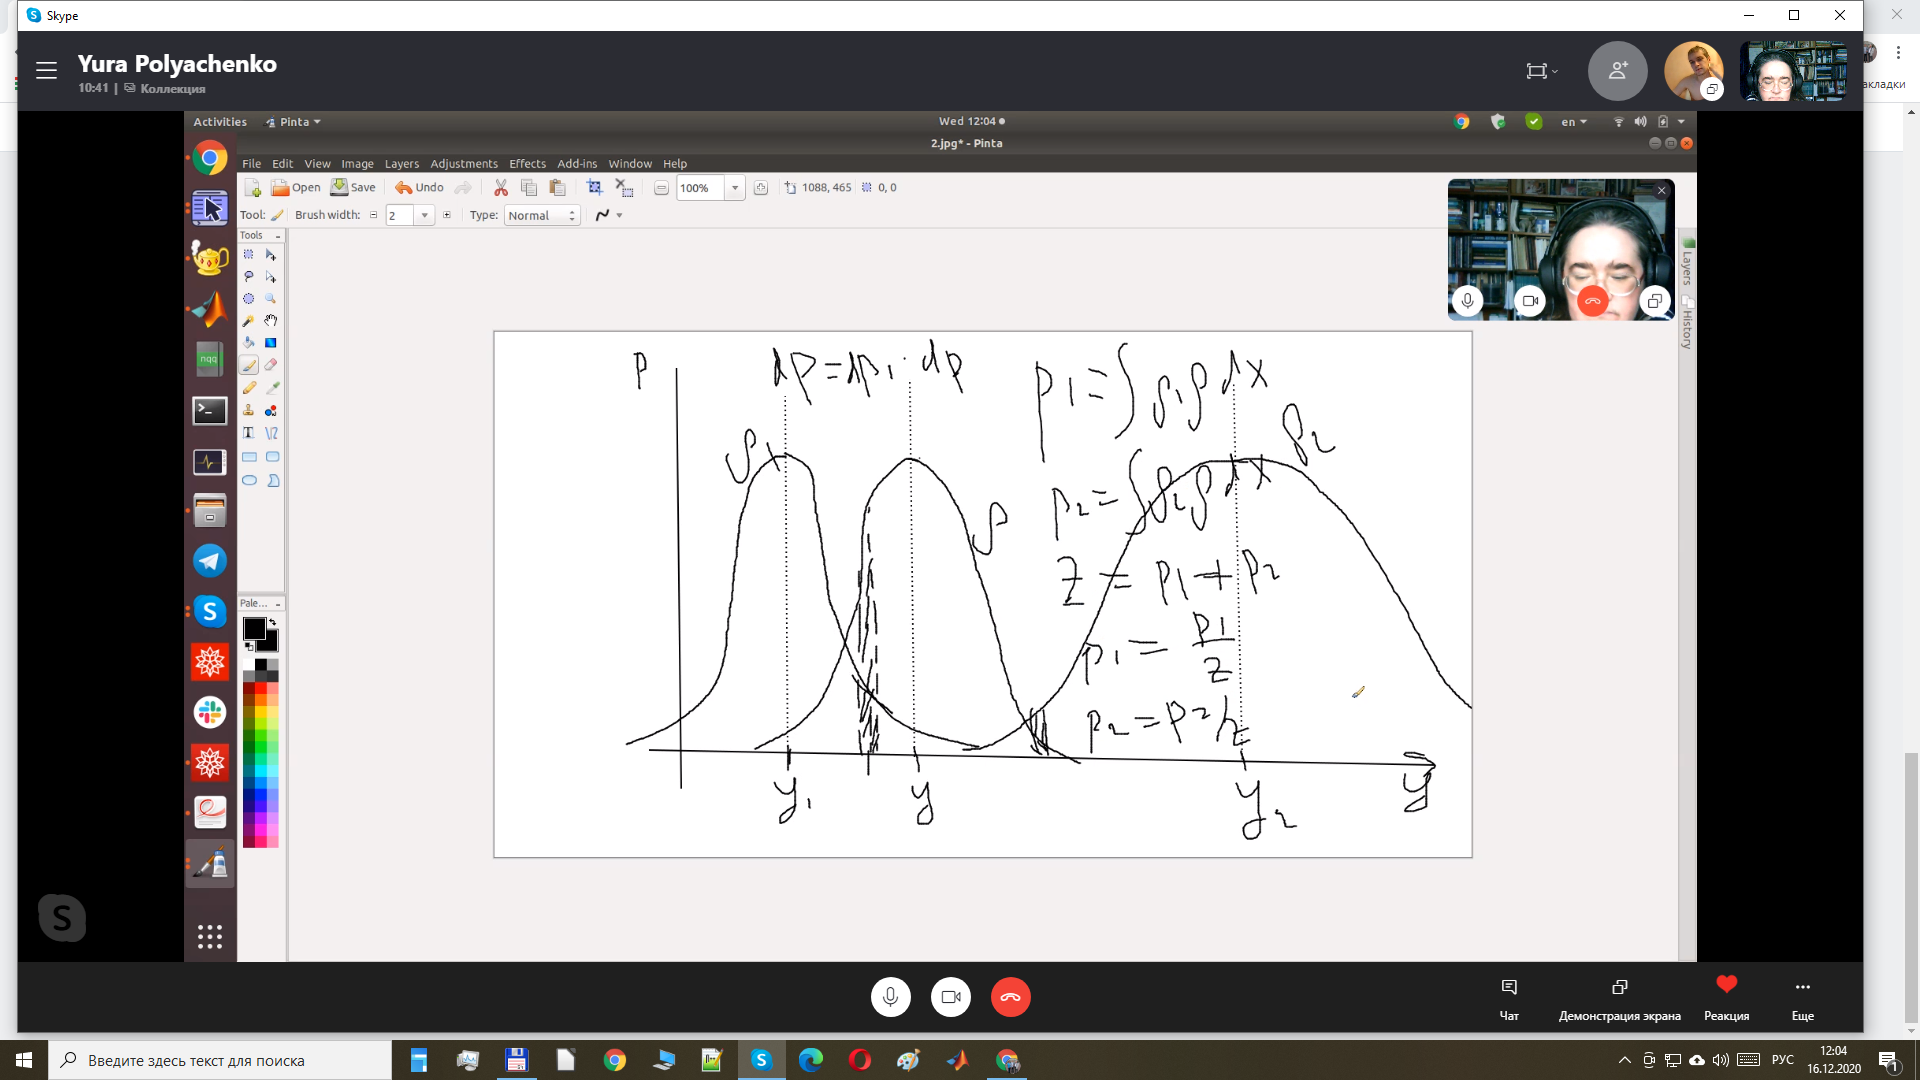 Skype
Yura Polyachenko
10:41 | Коллекция
акладки
Activities Pinta Wed 12:04 en
2.jpg* - Pinta
File Edit View Image Layers Adjustments Effects Add-ins Window Help
Open Save Undo 100% 1088, 465 0, 0
Tool: Brush width: 2 Type: Normal
Tools
Layers
History
nqq
P dP=dp₁·dp p1=∫ρ₁ρdx
ρ₁ ρ₂
p₂=∫ρ₂ρdx
ρ
Z=p1+p2
p₁=p1/z
p₂=p2/z
y₁ y y₂ y
Pale...
S
Чат Демонстрация экрана Реакция Еще
Введите здесь текст для поиска
РУС 12:04
16.12.2020
1